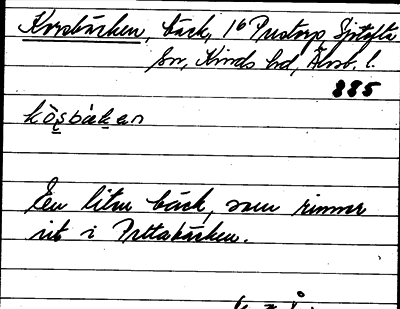 Korsbäcken, bäck, 1⁶ Prestorp Sjötofta
sn, Kinds hd, Älvsb. l.
885
En liten bäck, som rinner
ut i Jettabäcken.